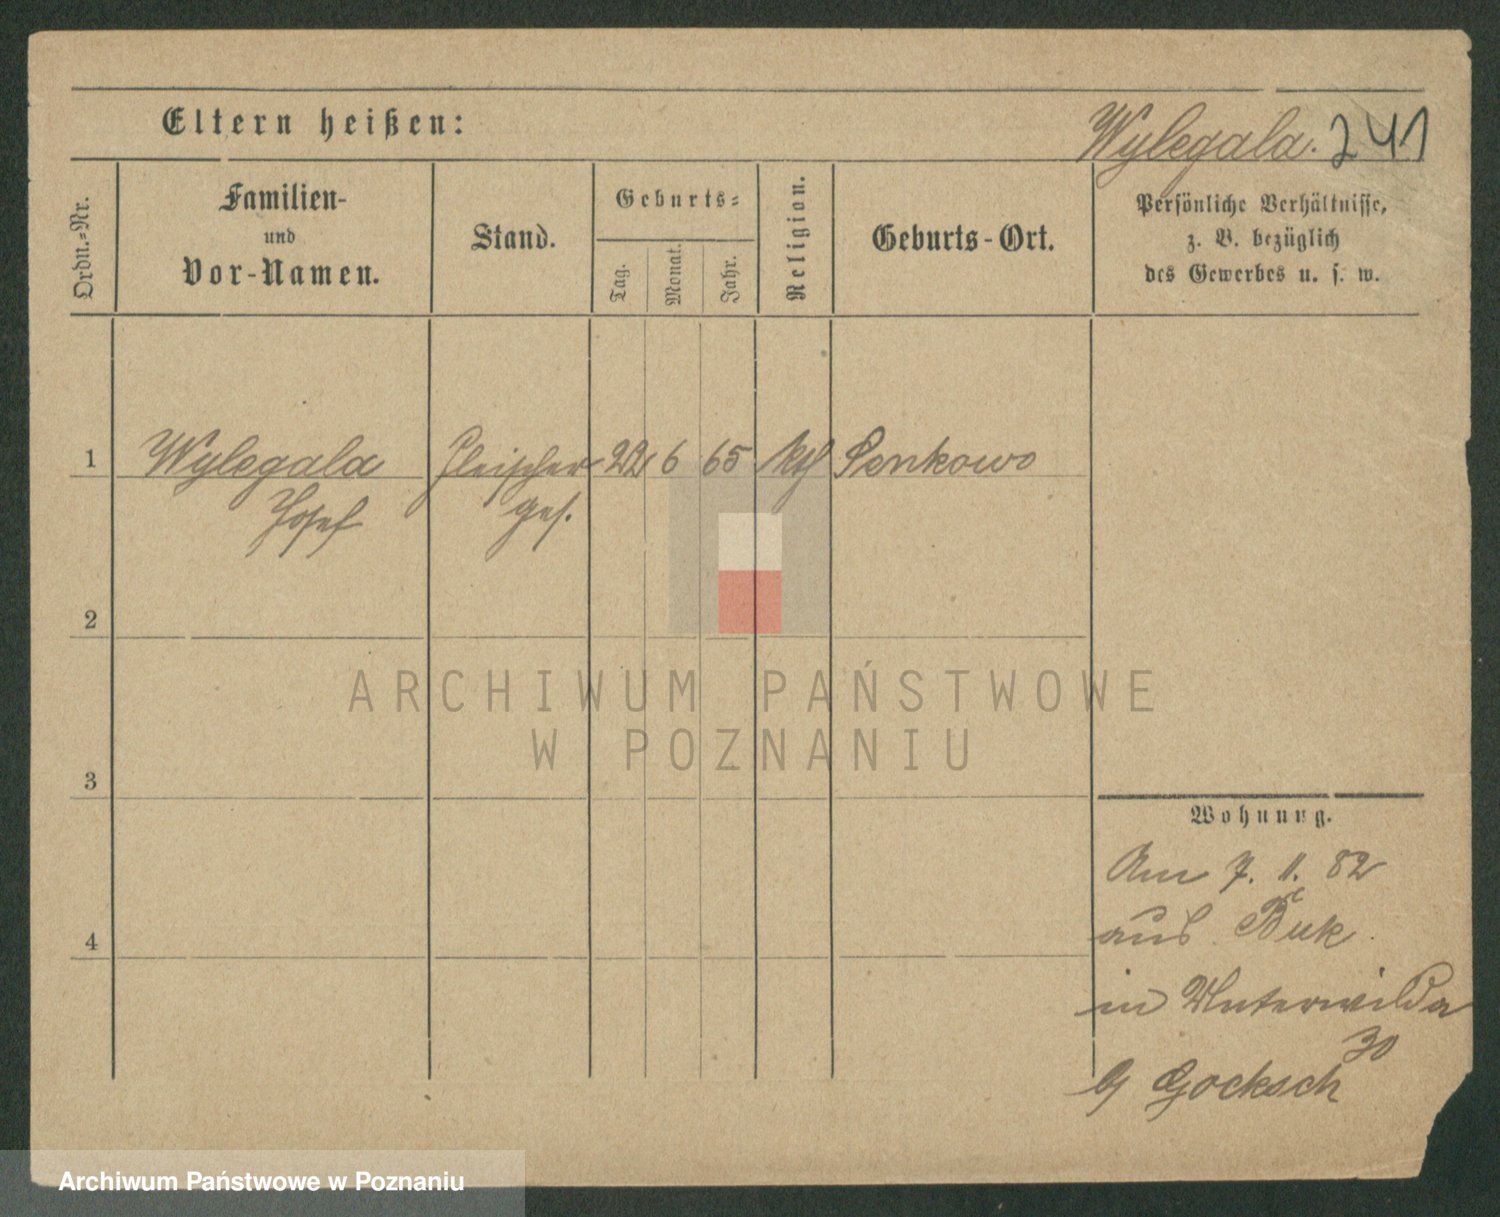 Eltern heißen:
Wylegala. 241
Ordn.-Nr.
Familien-
und
Vor-Namen.
Stand.
Geburts-
Tag.
Monat.
Jahr.
Religion.
Geburts-Ort.
Persönliche Verhältnisse,
z. B. bezüglich
des Gewerbes u. s. w.
1 Wylegala Fleischer 22 6 65 kth Senkowo
Josef ges.
2
ARCHIWUM PAŃSTWOWE
W POZNANIU
3
Wohnung.
Am 7. 11. 82
aus Buk
4
in Unterwilda
30
b Gocksch
Archiwum Państwowe w Poznaniu